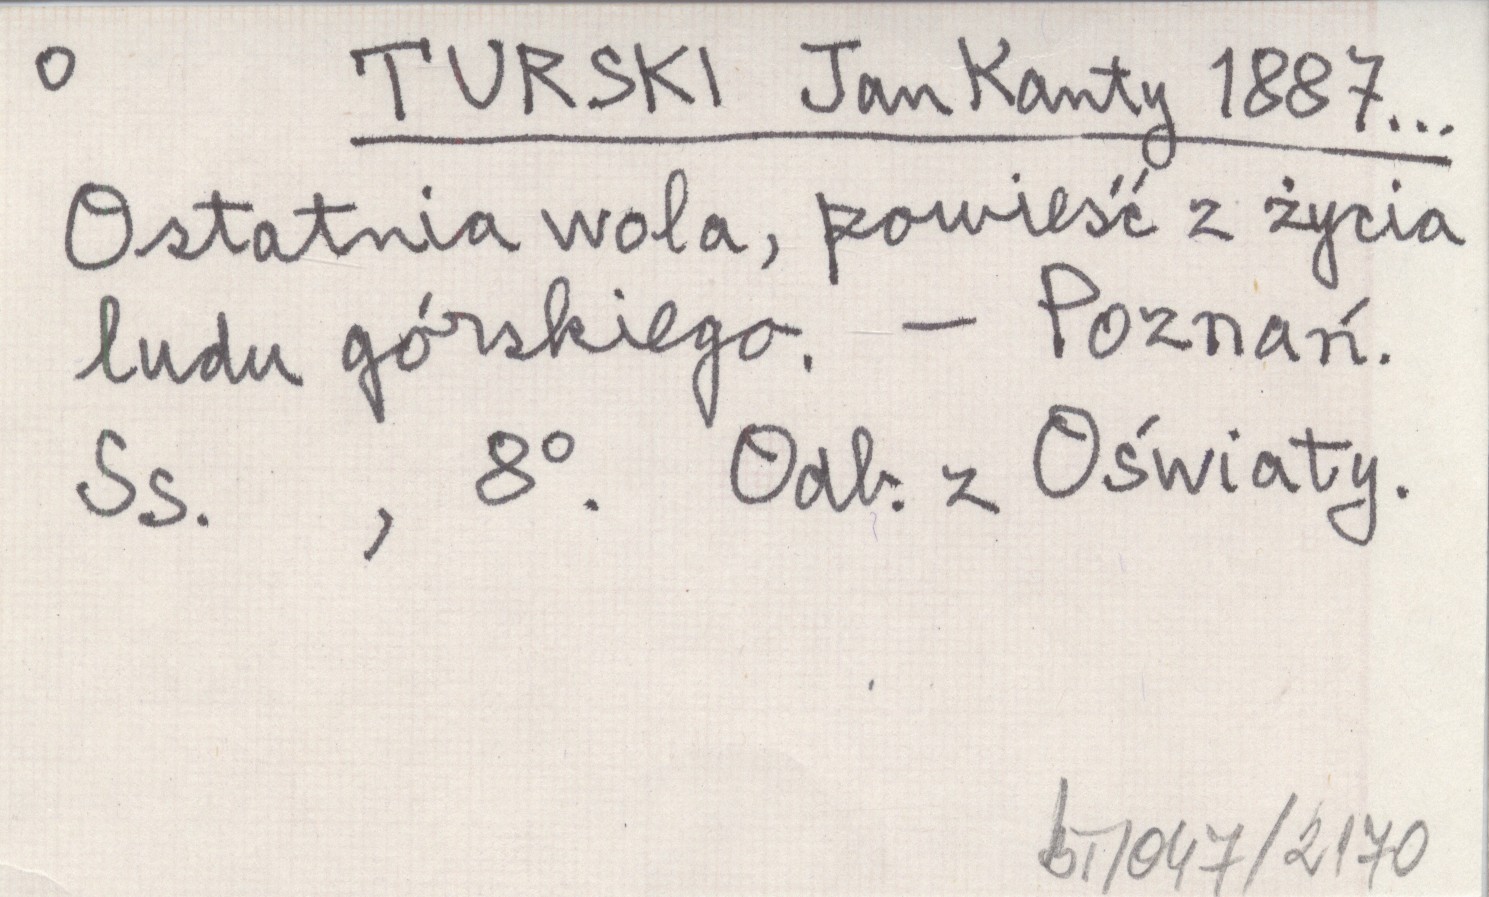 o TURSKI Jan Kanty 1887...
Ostatnia wola, powieść z życia
ludu górskiego. — Poznań.
Ss. , 8°. Odb. z Oświaty.
/047/2170